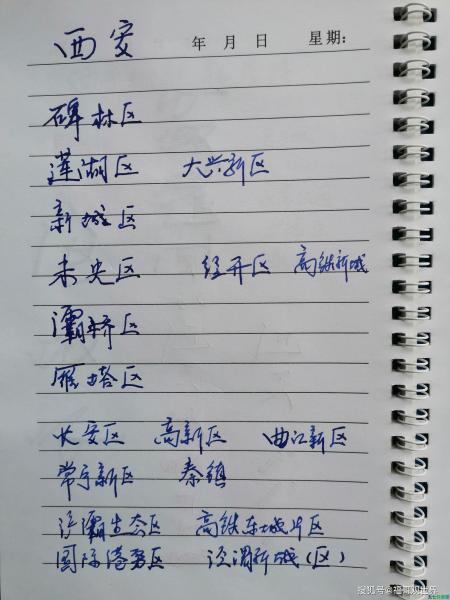 西安 年 月 日 星期:
碑林区
莲湖区 大兴新区
新城区
未央区 经开区 高铁新城
灞桥区
雁塔区
长安区 高新区 曲江新区
常宁新区 秦镇
浐灞生态区 高铁东城片区
国际港务区 泾渭新城(区)
搜狐号@福哥观世界